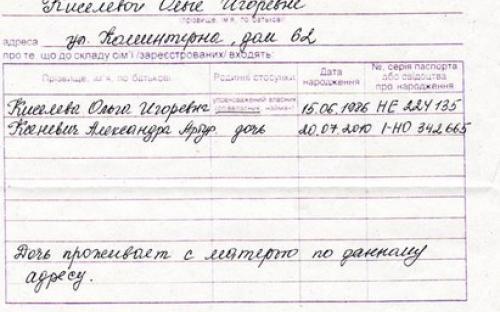 Киселевой Ользе Игоревне
(прізвище, ім'я, по батькові)
адреса ул. Коминтерна, дом 62
про те, що до складу сім'ї /зареєстрованих/ входять:
Прізвище, ім'я, по батькові Родинні стосунки Дата народження №, серія паспорта або свідоцтва про народження
Киселева Ольга Игоревна уповноважений власник (співвласник, наймач) 15.06.1986 НЕ 224135
Ксеневич Александра Артур. дочь 20.07.2010 I-НО 342665
Дочь проживает с матерью по данному
адресу.